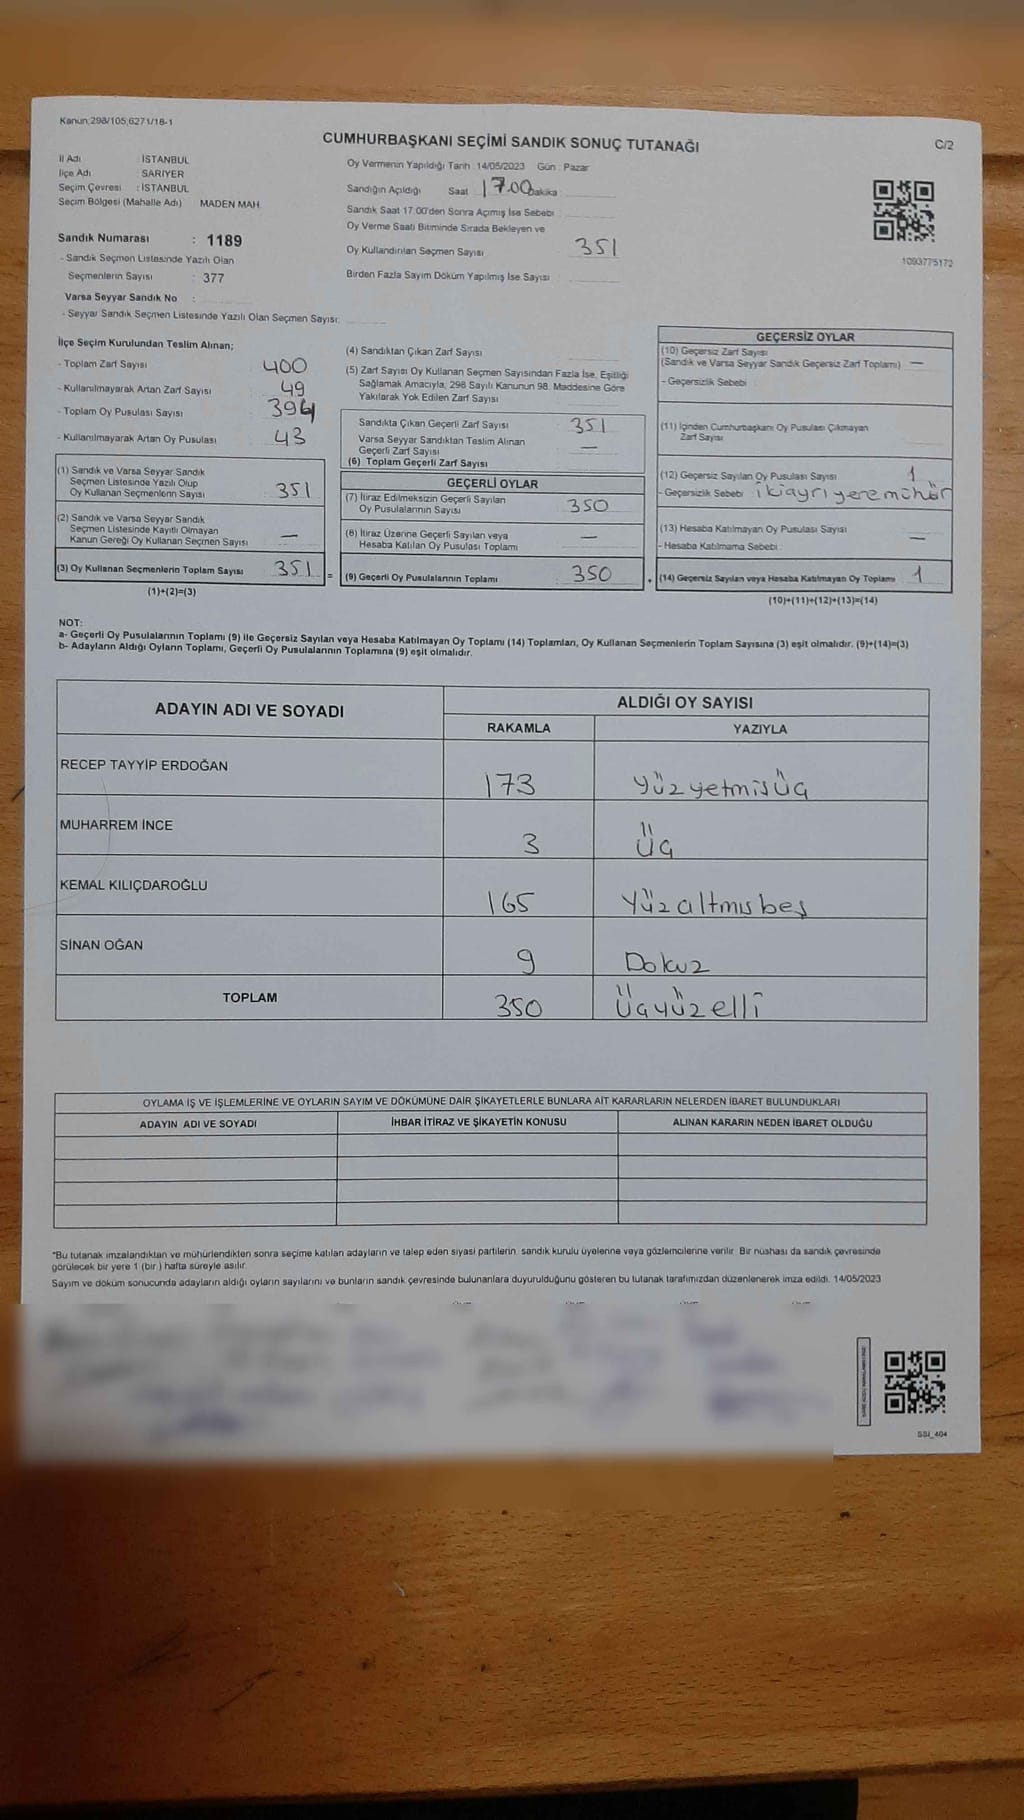 Kanun;298/105;6271/18-1
CUMHURBAŞKANI SEÇİMİ SANDIK SONUÇ TUTANAĞI
C/2
İl Adı : İSTANBUL
İlçe Adı : SARIYER
Seçim Çevresi : İSTANBUL
Seçim Bölgesi (Mahalle Adı) MADEN MAH.
Sandık Numarası : 1189
- Sandık Seçmen Listesinde Yazılı Olan
Seçmenlerin Sayısı : 377
Varsa Seyyar Sandık No :
- Seyyar Sandık Seçmen Listesinde Yazılı Olan Seçmen Sayısı:
Oy Vermenin Yapıldığı Tarih :14/05/2023 Gün : Pazar
Sandığın Açıldığı Saat 17.00 Dakika
Sandık Saat 17:00'den Sonra Açımış İse Sebebi
Oy Verme Saati Bitiminde Sırada Bekleyen ve
Oy Kullandırılan Seçmen Sayısı 351
Birden Fazla Sayım Döküm Yapılmış İse Sayısı
1093775172
İlçe Seçim Kurulundan Teslim Alınan;
- Toplam Zarf Sayısı 400
- Kullanılmayarak Artan Zarf Sayısı 49
- Toplam Oy Pusulası Sayısı 394
- Kullanılmayarak Artan Oy Pusulası 43
(1) Sandık ve Varsa Seyyar Sandık
Seçmen Listesinde Yazılı Olup
Oy Kullanan Seçmenlerin Sayısı 351
(2) Sandık ve Varsa Seyyar Sandık
Seçmen Listesinde Kayıtlı Olmayan
Kanun Gereği Oy Kullanan Seçmen Sayısı —
(3) Oy Kullanan Seçmenlerin Toplam Sayısı 351 =
(1)+(2)=(3)
(4) Sandıktan Çıkan Zarf Sayısı
(5) Zarf Sayısı Oy Kullanan Seçmen Sayısından Fazla İse, Eşitliği
Sağlamak Amacıyla, 298 Sayılı Kanunun 98. Maddesine Göre
Yakılarak Yok Edilen Zarf Sayısı
Sandıkta Çıkan Geçerli Zarf Sayısı 351
Varsa Seyyar Sandıktan Teslim Alınan
Geçerli Zarf Sayısı —
(6) Toplam Geçerli Zarf Sayısı
GEÇERLİ OYLAR
(7) İtiraz Edilmeksizin Geçerli Sayılan
Oy Pusulalarının Sayısı 350
(8) İtiraz Üzerine Geçerli Sayılan veya
Hesaba Katılan Oy Pusulası Toplamı —
(9) Geçerli Oy Pusulalarının Toplamı 350 +
GEÇERSİZ OYLAR
(10) Geçersiz Zarf Sayısı
(Sandık ve Varsa Seyyar Sandık Geçersiz Zarf Toplamı) —
- Geçersizlik Sebebi :
(11) İçinden Cumhurbaşkanı Oy Pusulası Çıkmayan
Zarf Sayısı
(12) Geçersiz Sayılan Oy Pusulası Sayısı 1
- Geçersizlik Sebebi : ikiayrıyeremühür
(13) Hesaba Katılmayan Oy Pusulası Sayısı —
- Hesaba Katılmama Sebebi :
(14) Geçersiz Sayılan veya Hesaba Katılmayan Oy Toplamı 1
(10)+(11)+(12)+(13)=(14)
NOT:
a- Geçerli Oy Pusulalarının Toplamı (9) ile Geçersiz Sayılan veya Hesaba Katılmayan Oy Toplamı (14) Toplamları, Oy Kullanan Seçmenlerin Toplam Sayısına (3) eşit olmalıdır. (9)+(14)=(3)
b- Adayların Aldığı Oyların Toplamı, Geçerli Oy Pusulalarının Toplamına (9) eşit olmalıdır.
ADAYIN ADI VE SOYADI
ALDIĞI OY SAYISI
RAKAMLA YAZIYLA
RECEP TAYYİP ERDOĞAN 173 Yüzyetmisüç
MUHARREM İNCE 3 üç
KEMAL KILIÇDAROĞLU 165 Yüzaltmışbeş
SİNAN OĞAN 9 Dokuz
TOPLAM 350 üçyüzelli
OYLAMA İŞ VE İŞLEMLERİNE VE OYLARIN SAYIM VE DÖKÜMÜNE DAİR ŞİKAYETLERLE BUNLARA AİT KARARLARIN NELERDEN İBARET BULUNDUKLARI
ADAYIN ADI VE SOYADI İHBAR İTİRAZ VE ŞİKAYETİN KONUSU ALINAN KARARIN NEDEN İBARET OLDUĞU
*Bu tutanak imzalandıktan ve mühürlendikten sonra seçime katılan adayların ve talep eden siyasi partilerin, sandık kurulu üyelerine veya gözlemcilerine verilir. Bir nüshası da sandık çevresinde
görülecek bir yere 1 (bir ) hafta süreyle asılır.
Sayım ve döküm sonucunda adayların aldığı oyların sayılarını ve bunların sandık çevresinde bulunanlara duyurulduğunu gösteren bu tutanak tarafımızdan düzenlenerek imza edildi. 14/05/2023
SSI_404